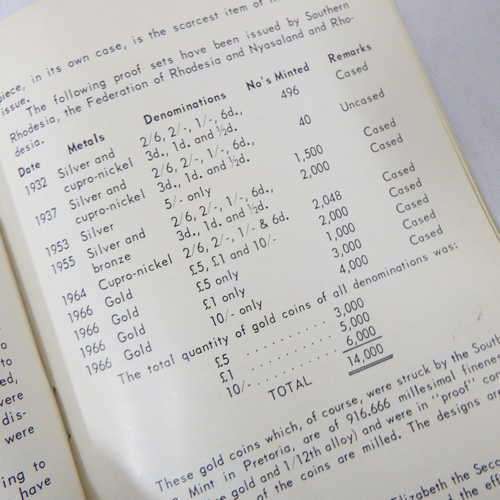 piece, in its own case, is the scarcest item of
issue.
The following proof sets have been issued by Southern
Rhodesia, the Federation of Rhodesia and Nyasaland and Rho-
desia.
Date Metals Denominations No's Minted Remarks
1932 Silver and 2/6, 2/-, 1/-, 6d., 496 Cased
cupro-nickel 3d., 1d. and ½d.
1937 Silver and 2/6, 2/-, 1/-, 6d., 40 Uncased
cupro-nickel 3d., 1d. and ½d.
1953 Silver 5/- only 1,500 Cased
1955 Silver and 2/6, 2/-, 1/-, 6d., 2,000 Cased
bronze 3d., 1d. and ½d.
1964 Cupro-nickel 2/6, 2/-, 1/- & 6d. 2,048 Cased
1966 Gold £5, £1 and 10/- 2,000 Cased
1966 Gold £5 only 1,000 Cased
1966 Gold £1 only 3,000 Cased
1966 Gold 10/- only 4,000 Cased
The total quantity of gold coins of all denominations was:
£5 .......... 3,000
£1 .......... 5,000
10/- .......... 6,000
TOTAL 14,000
These gold coins which, of course, were struck by the South
Mint in Pretoria, are of 916.666 millesimal finene
gold and 1/12th alloy) and were in "proof" con
of the coins are milled. The designs are
Elizabeth the Seco
the ef
to
ed,
were
dis-
were
ing to
have